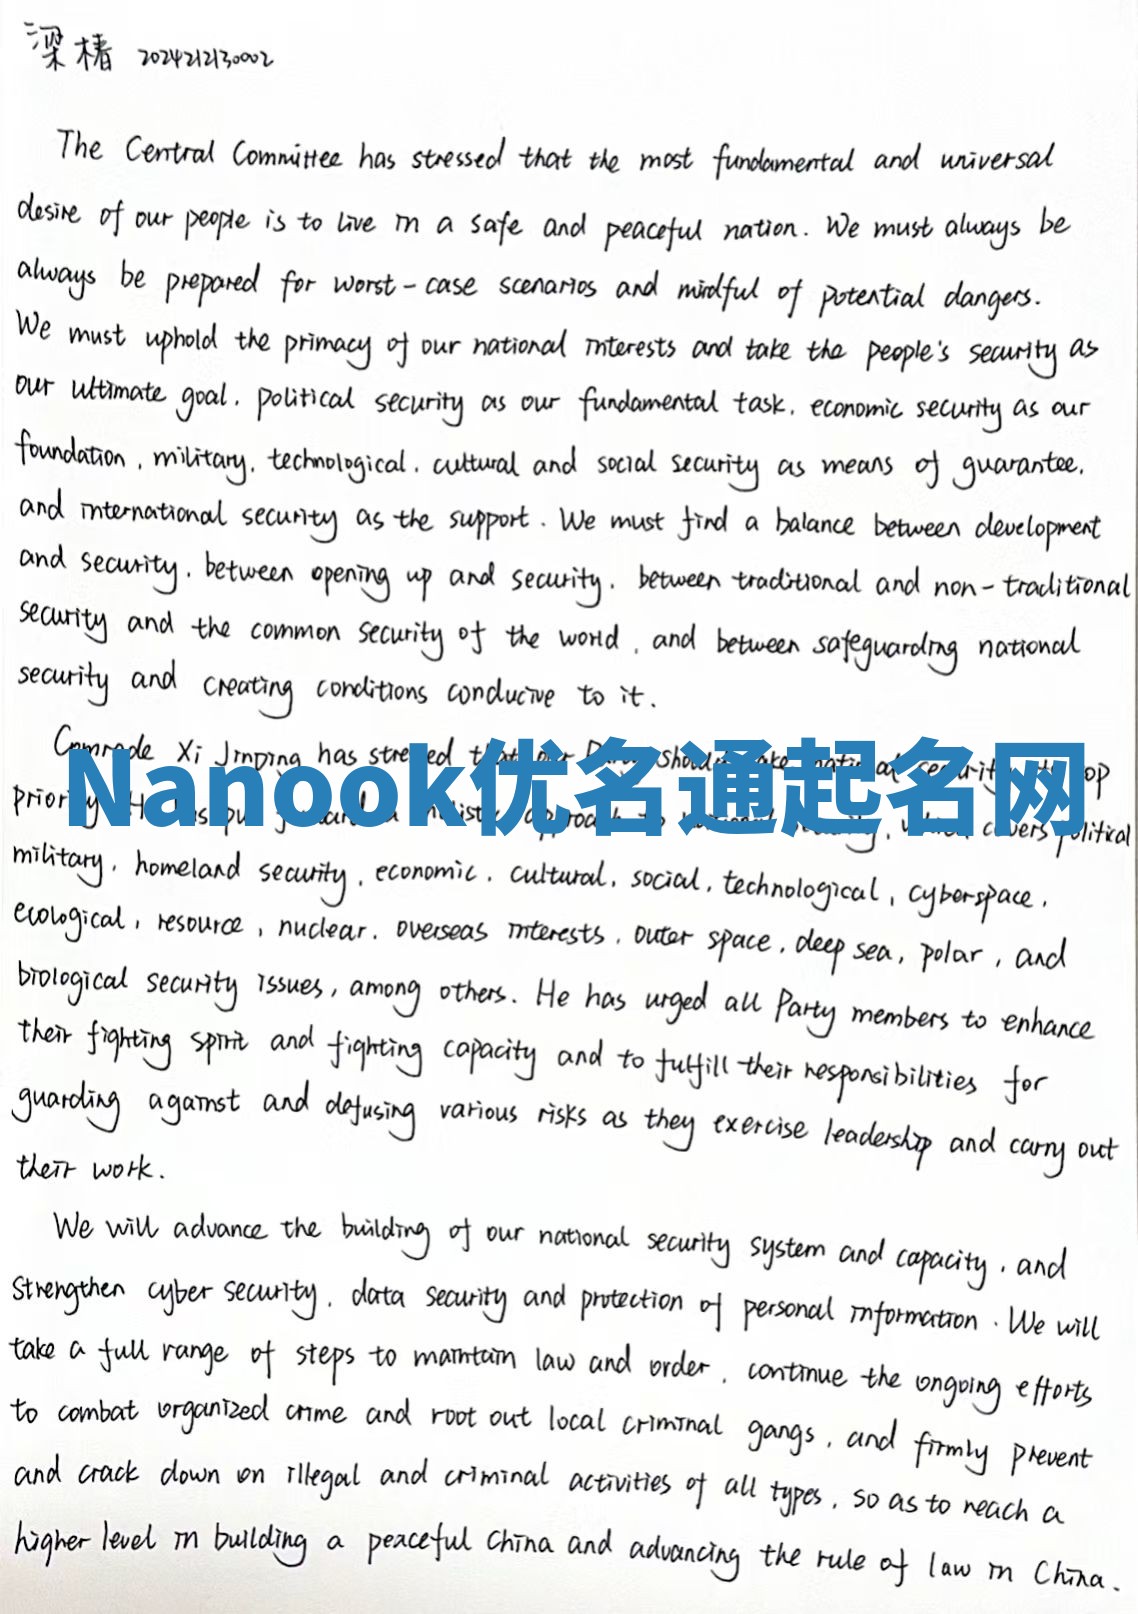 梁椿 2024212130002
The Central Committee has stressed that the most fundamental and universal
desire of our people is to live in a safe and peaceful nation. We must always be
always be prepared for worst-case scenarios and mindful of potential dangers.
We must uphold the primacy of our national interests and take the people's security as
our ultimate goal, political security as our fundamental task, economic security as our
foundation, military, technological, cultural and social security as means of guarantee,
and international security as the support. We must find a balance between development
and security, between opening up and security, between traditional and non-traditional
security and the common security of the world, and between safeguarding national
security and creating conditions conducive to it.
Comrade Xi Jinping has stressed that our Party should take national security top
Nanook优名通起名网
priority. He has put a holistic approach to national security, which covers political
military, homeland security, economic, cultural, social, technological, cyberspace,
ecological, resource, nuclear, overseas interests, outer space, deep sea, polar, and
biological security issues, among others. He has urged all Party members to enhance
their fighting spirit and fighting capacity and to fulfill their responsibilities for
guarding against and defusing various risks as they exercise leadership and carry out
their work.
We will advance the building of our national security system and capacity, and
strengthen cyber security, data security and protection of personal information. We will
take a full range of steps to maintain law and order, continue the ongoing efforts
to combat organized crime and root out local criminal gangs, and firmly prevent
and crack down on illegal and criminal activities of all types, so as to reach a
higher level in building a peaceful China and advancing the rule of law in China.